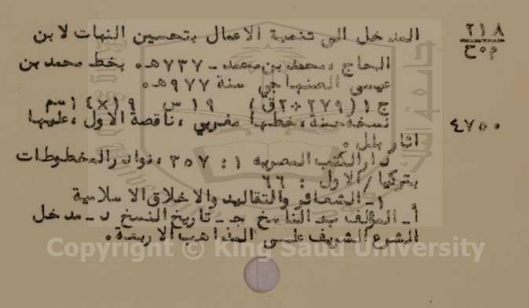 ٢١٨ المدخل الى تنمية الاعمال بتحسين النيات لابن
م٠ح الحاج ،محمد بن محمد - ٧٣٧هـ٠ بخط محمد بن
عيسى الصنهاجي سنة ٩٧٧هـ٠
ج١(٢٧٩+٢ق) ١٩س ١٩×١٤سم
٤٧٥٥ نسخة حسنة ،خطها مغربي ،ناقصة الاول ،عليها
اثار بلل ٠
دار الكتب المصرية ١: ٣٥٧ ،نوادر المخطوطات
بتركيا/الاول : ٦٦
١- الشعائر والتقاليد والاخلاق الاسلامية
أ- المؤلف ب- الناسخ جـ - تاريخ النسخ د - مدخل
الشرع الشريف على المذاهب الاربعة٠
Copyright © King Saud University